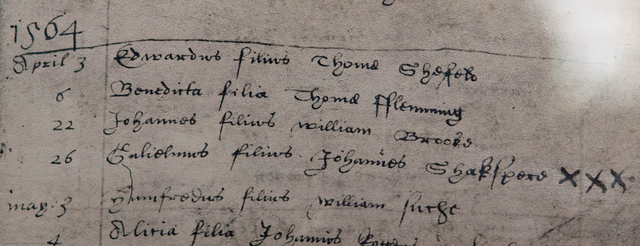 1564
April 3 Edwardus filius Thome Shefeld
6 Benedicta filia Thome fflemming
22 Johannes filius william Brooke
26 Gulielmus filius Johannes Shakspere XXX
may. 3 Humfredus filius william suche
4 Alicia filia Johannis